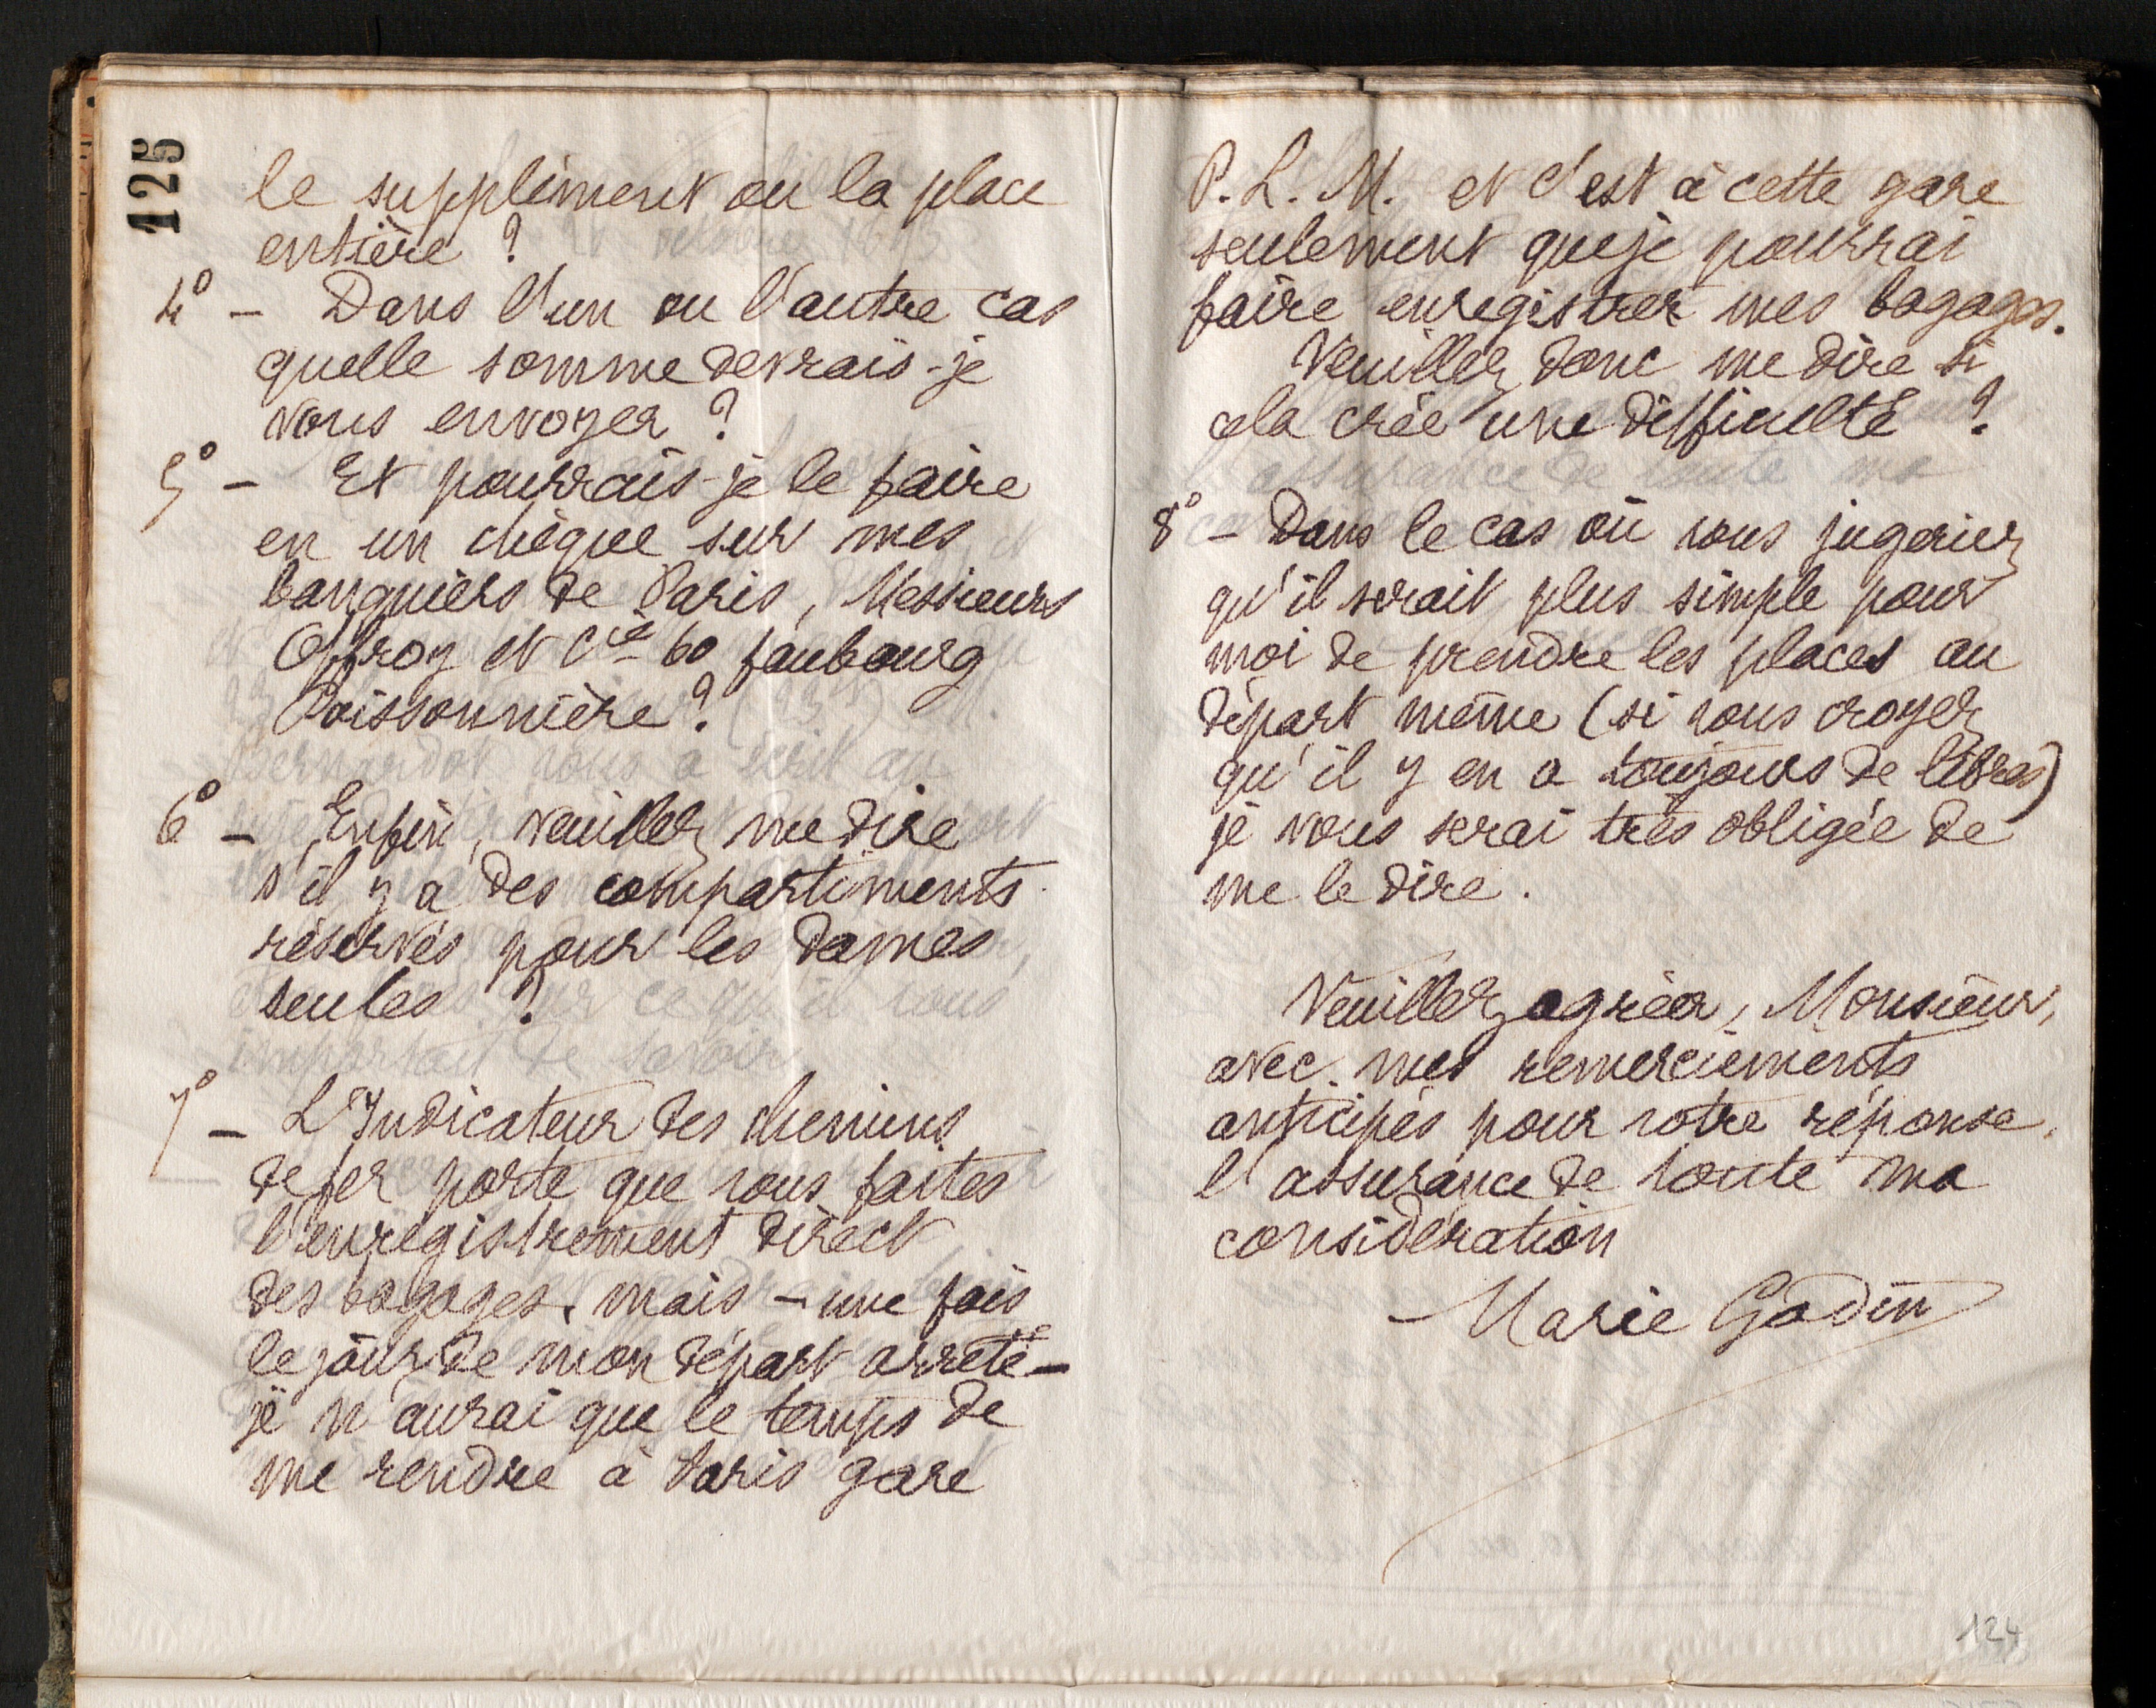 125
le supplément ou la place
entière ?
4° – Dans l'un ou l'autre cas
quelle somme devrais-je
vous envoyer ?
5° – Et pourrais-je le faire
en un chèque sur mes
banquiers de Paris, Messieurs
Offroy et Cie 60 faubourg
Poissonnière ?
6° – Enfin, veuillez me dire
s'il y a des compartiments
réservés pour les dames
seules ?
7° – L'Indicateur des chemins
de fer porte que vous faites
l'enregistrement direct
des bagages. mais – une fois
le jour de mon départ arrêté –
je n'aurai que le temps de
me rendre à Paris gare
P. L. M. et c'est à cette gare
seulement que je pourrai
faire enregistrer mes bagages.
Veuillez donc me dire si
cela crée une difficulté ?
8° – Dans le cas où vous jugeriez
qu'il serait plus simple pour
moi de prendre les places au
départ même (si vous croyez
qu'il y en a toujours de libres)
je vous serai très obligée de
me le dire.
Veuillez agréer, Monsieur,
avec mes remerciements
anticipés pour votre réponse,
l'assurance de toute ma
considération
Marie Godin
124